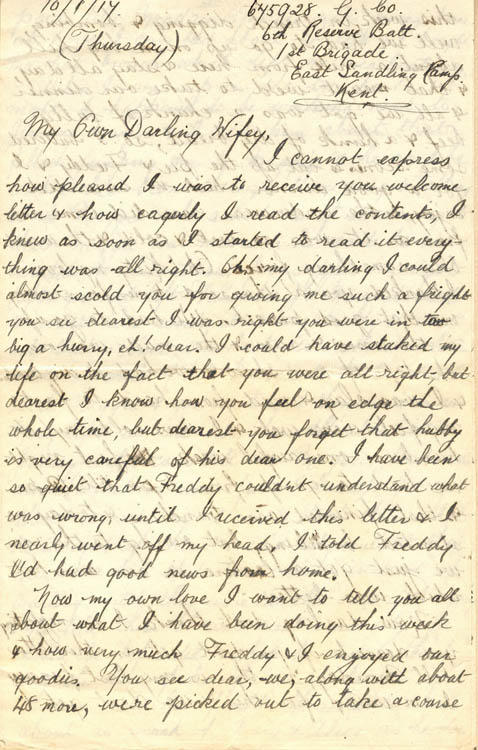 10/1/17
(Thursday)
645928. G. Co.
6th Reserve Batt.
1st Brigade.
East Sandling Camp
Kent.
My Own Darling Wifey,
I cannot express
how pleased I was to receive you welcome
letter & how eagerly I read the contents, I
knew as soon as I started to read it every-
thing was all right. Oh! my darling I could
almost scold you for giving me such a fright
you see dearest I was right you were in too
big a hurry, eh! dear. I could have staked my
life on the fact that you were all right, but
dearest I know how you feel on edge the
whole time, but dearest you forget that hubby
is very careful of his dear one. I have been
so quiet that Freddy couldn't understand what
was wrong, until I received this letter & I
nearly went off my head, I told Freddy
I'd had good news from home.
Now my own love I want to tell you all
about what I have been doing this week
& how very much Freddy & I enjoyed our
goodies. You see dear, we, along with about
48 more, were picked out to take a coarse